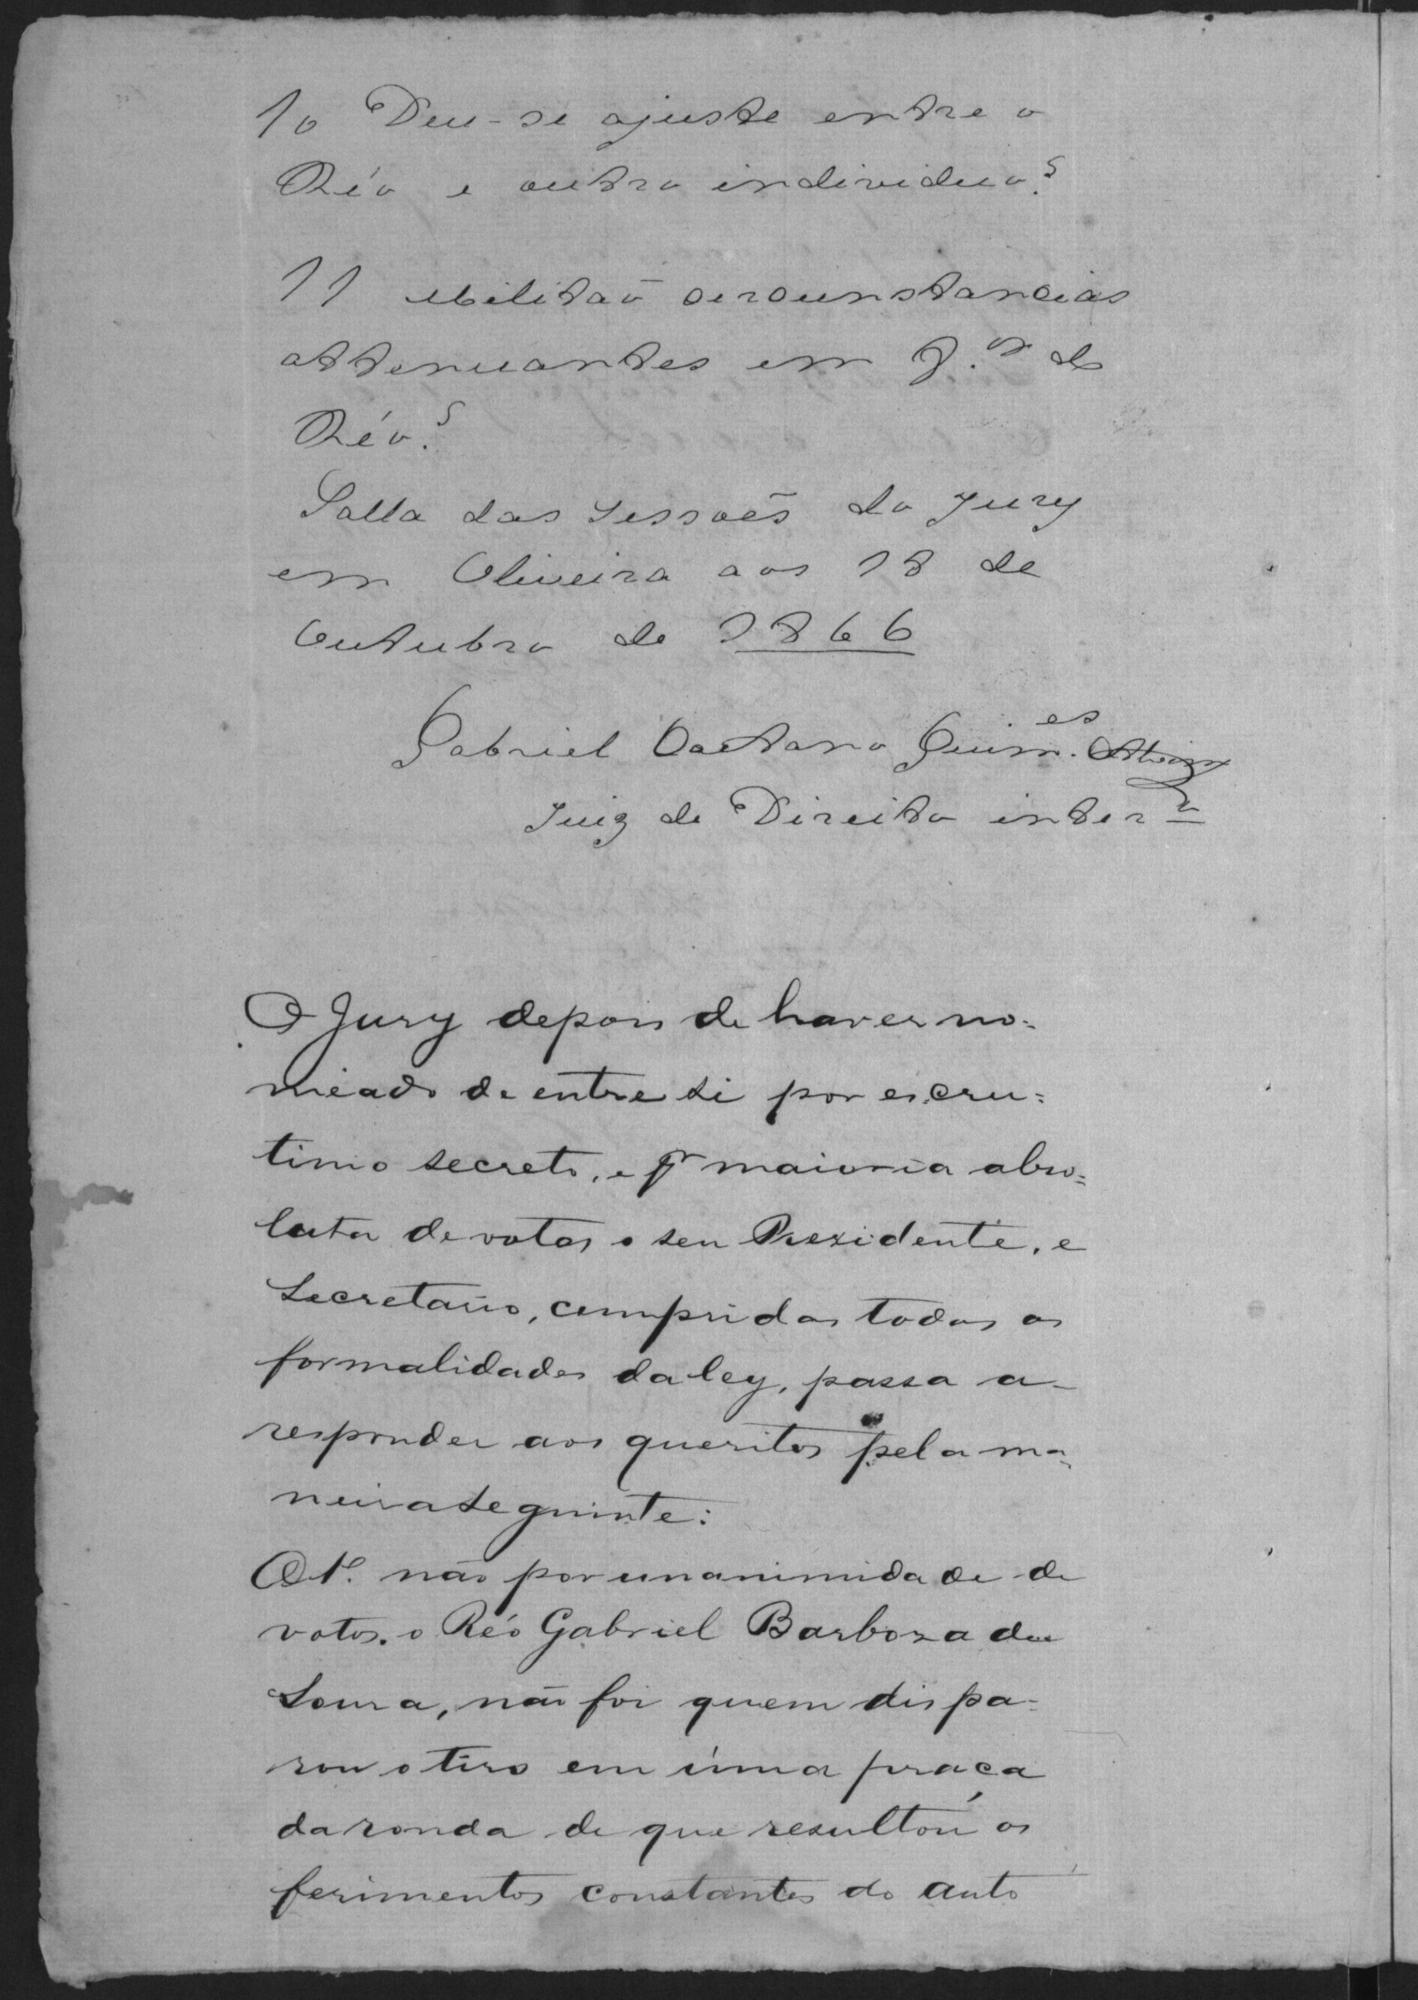 10 Deu-se ajuste entre o
Réo e outro individuo?
11 Militaõ circunstancias
attenuantes em f.or do
Réo?
Salla das sessoẽs do Jury
em Oliveira aos 18 de
Outubro de 1866
Gabriel Caetano Guim.es
Juiz de Direito inter.o
O Jury depois de haver no=
meado de entre si por escru=
tinio secreto, e pr maioria abso=
luta de votos o seu Prezidente, e
Secretario, cumpridas todas as
formalidades da ley, passa a-
responder aos queritos pela ma=
neira seguinte:
O 1º. não por unanimidade de
votos. o Réo Gabriel Barboza de
Souza, não foi quem dispa=
rou o tiro em úma praça
da ronda de que resultou os
ferimentos constantes do auto